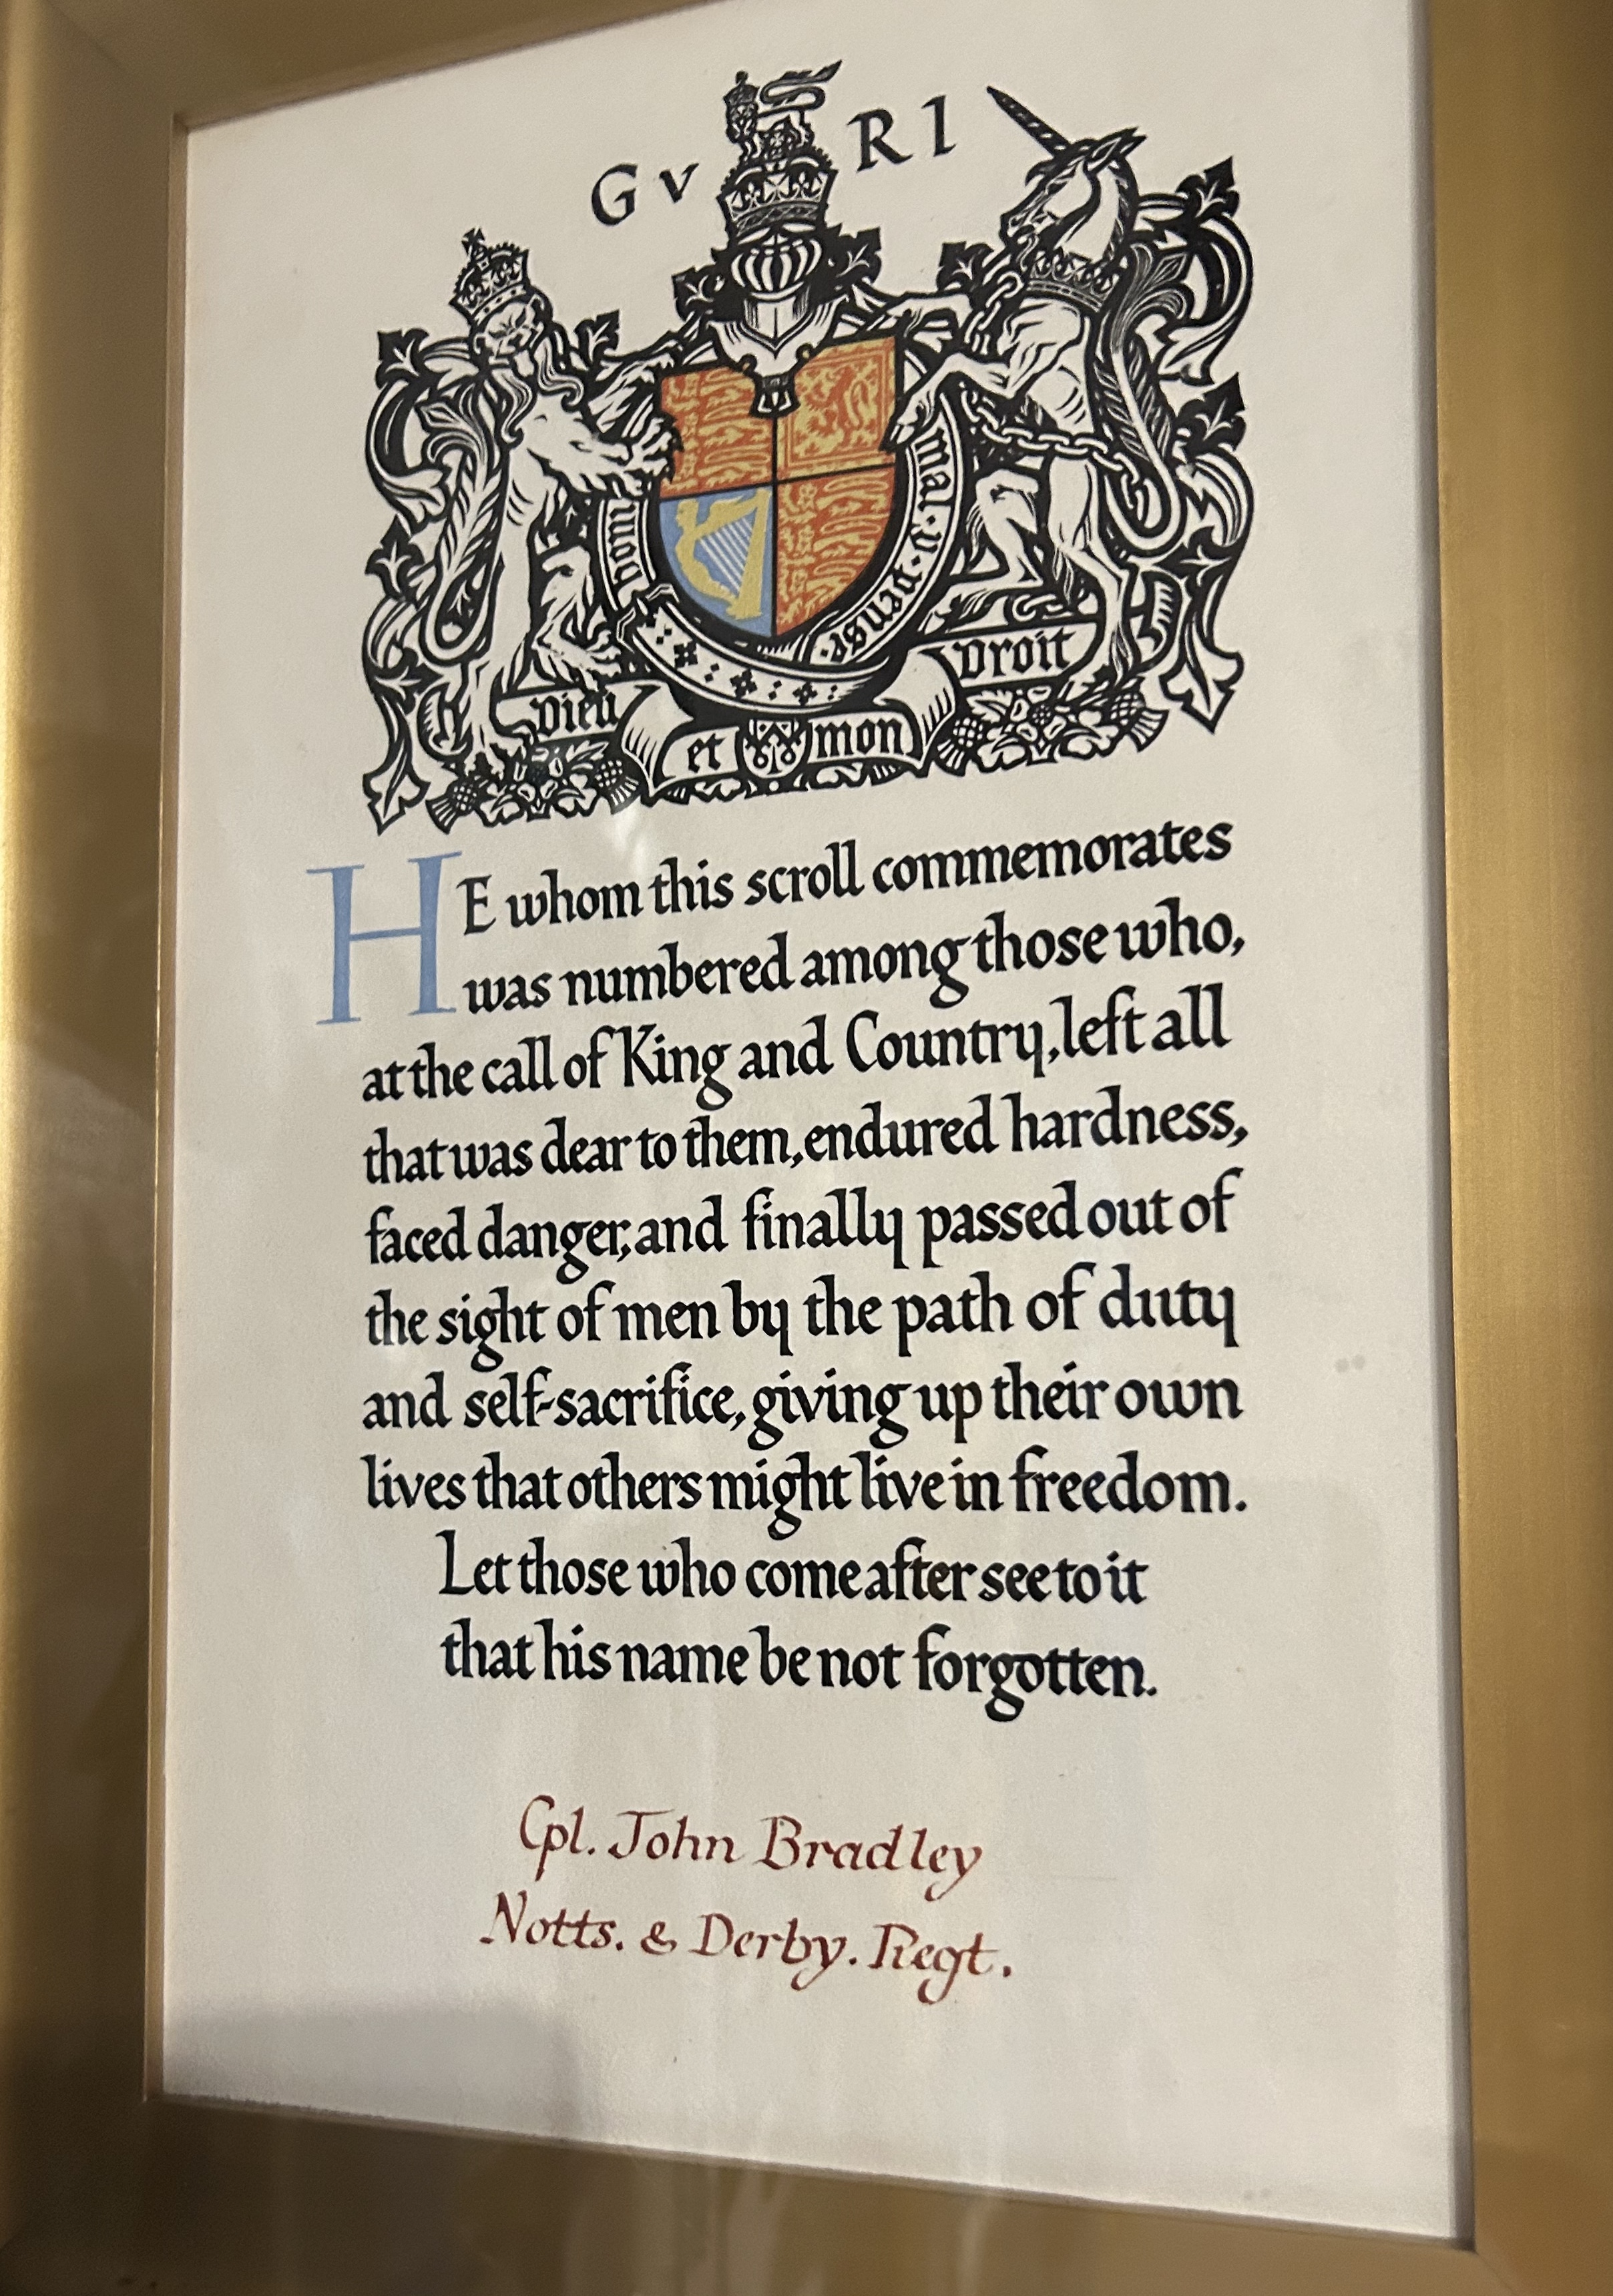 GV RI
honi
mal·y·pense·
Dieu et mon Droit
HE whom this scroll commemorates
was numbered among those who,
at the call of King and Country, left all
that was dear to them, endured hardness,
faced danger, and finally passed out of
the sight of men by the path of duty
and self-sacrifice, giving up their own
lives that others might live in freedom.
Let those who come after see to it
that his name be not forgotten.
Cpl. John Bradley
Notts. & Derby. Regt.